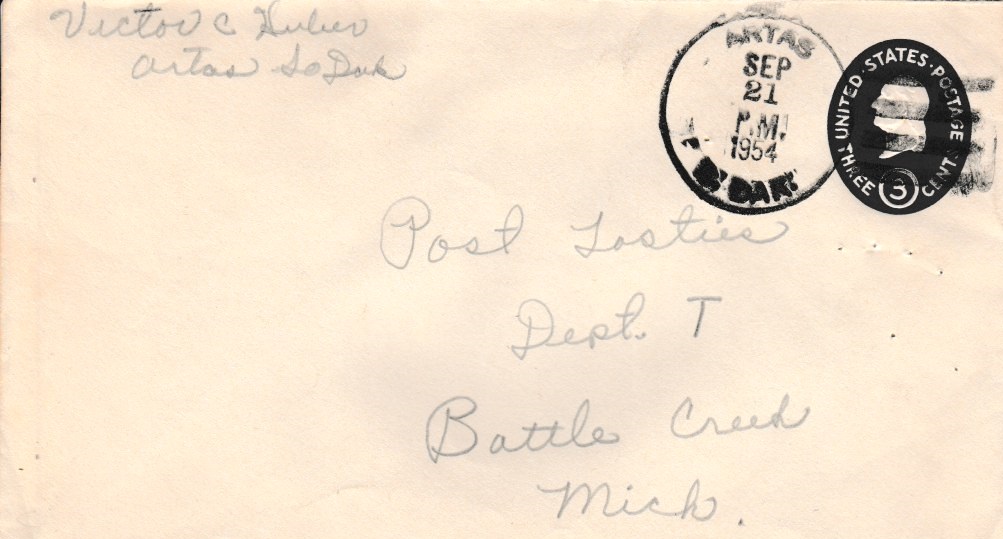 Victor C Huber
Artas So Dak
ARTAS
SEP
21
P.M.
1954
S. DAK.
UNITED STATES POSTAGE
THREE 3 CENTS
Post Tosties
Dept. T
Battle Creek
Mich.